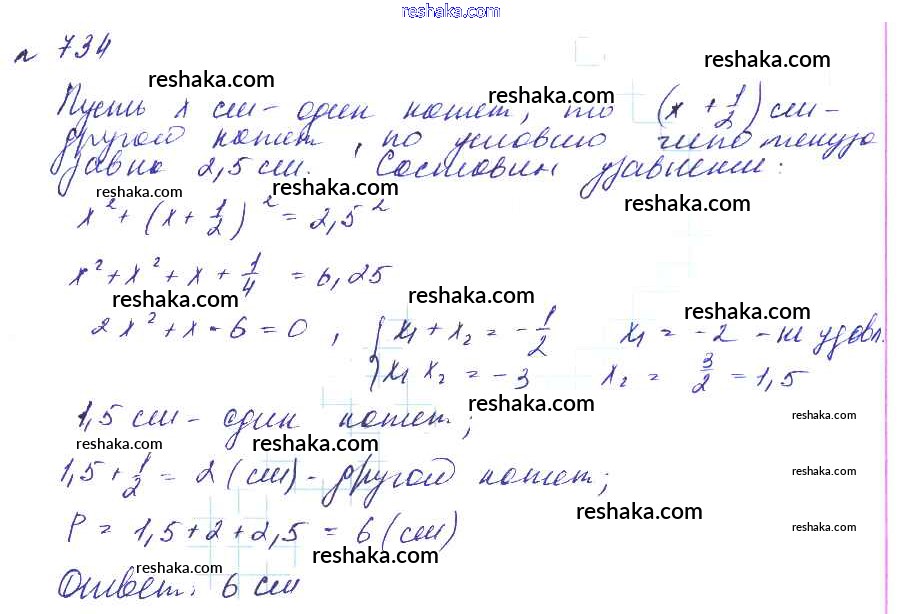 reshaka.com
№ 734
reshaka.com reshaka.com
Пусть x см - один катет, то (x + 1/2) см -
reshaka.com
другой катет, по условию гипотенуза
равна 2,5 см. Составим уравнение:
reshaka.com reshaka.com reshaka.com
x² + (x + 1/2)² = 2,5²
x² + x² + x + 1/4 = 6,25
reshaka.com reshaka.com reshaka.com
2x² + x - 6 = 0, { x₁ + x₂ = -1/2 x₁ = -2 - не удовл.
x₁ x₂ = -3 x₂ = 3/2 = 1,5
reshaka.com
1,5 см - один катет;
reshaka.com
reshaka.com reshaka.com
1,5 + 1/2 = 2 (см) - другой катет;
reshaka.com
reshaka.com
P = 1,5 + 2 + 2,5 = 6 (см)
reshaka.com
reshaka.com reshaka.com
Ответ: 6 см